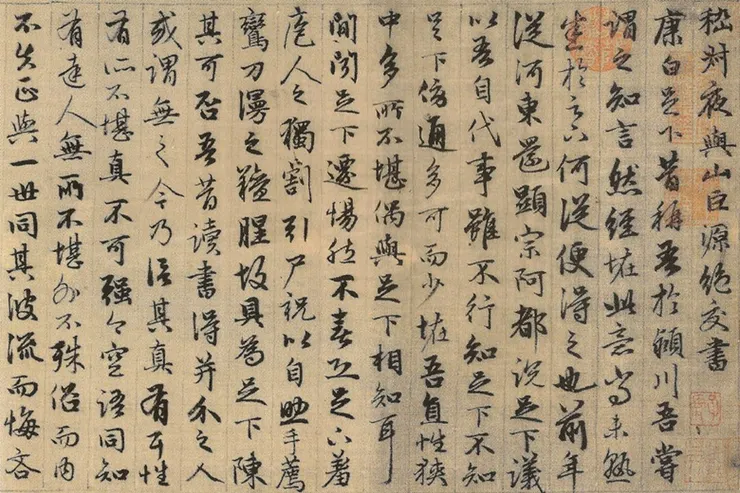 嵇叔夜與山巨源絕交書
康白足下昔稱吾於潁川吾嘗
謂之知言然經怪此意尚未熟
悉於足下何從便得之也前年
從河東還顯宗阿都說足下議
以吾自代事雖不行知足下不知
足下傍通多可而少怪吾直性狹
中多所不堪偶與足下相知耳
間聞足下遷惕然不喜恐足下羞
庖人之獨割引尸祝以自助手薦
鸞刀漫之羶腥故具為足下陳
其可否吾昔讀書得并介之人
或謂無之今乃信其真有耳性
有所不堪真不可強今空語同知
有達人無所不堪外不殊俗而內
不失正與一世同其波流而悔吝